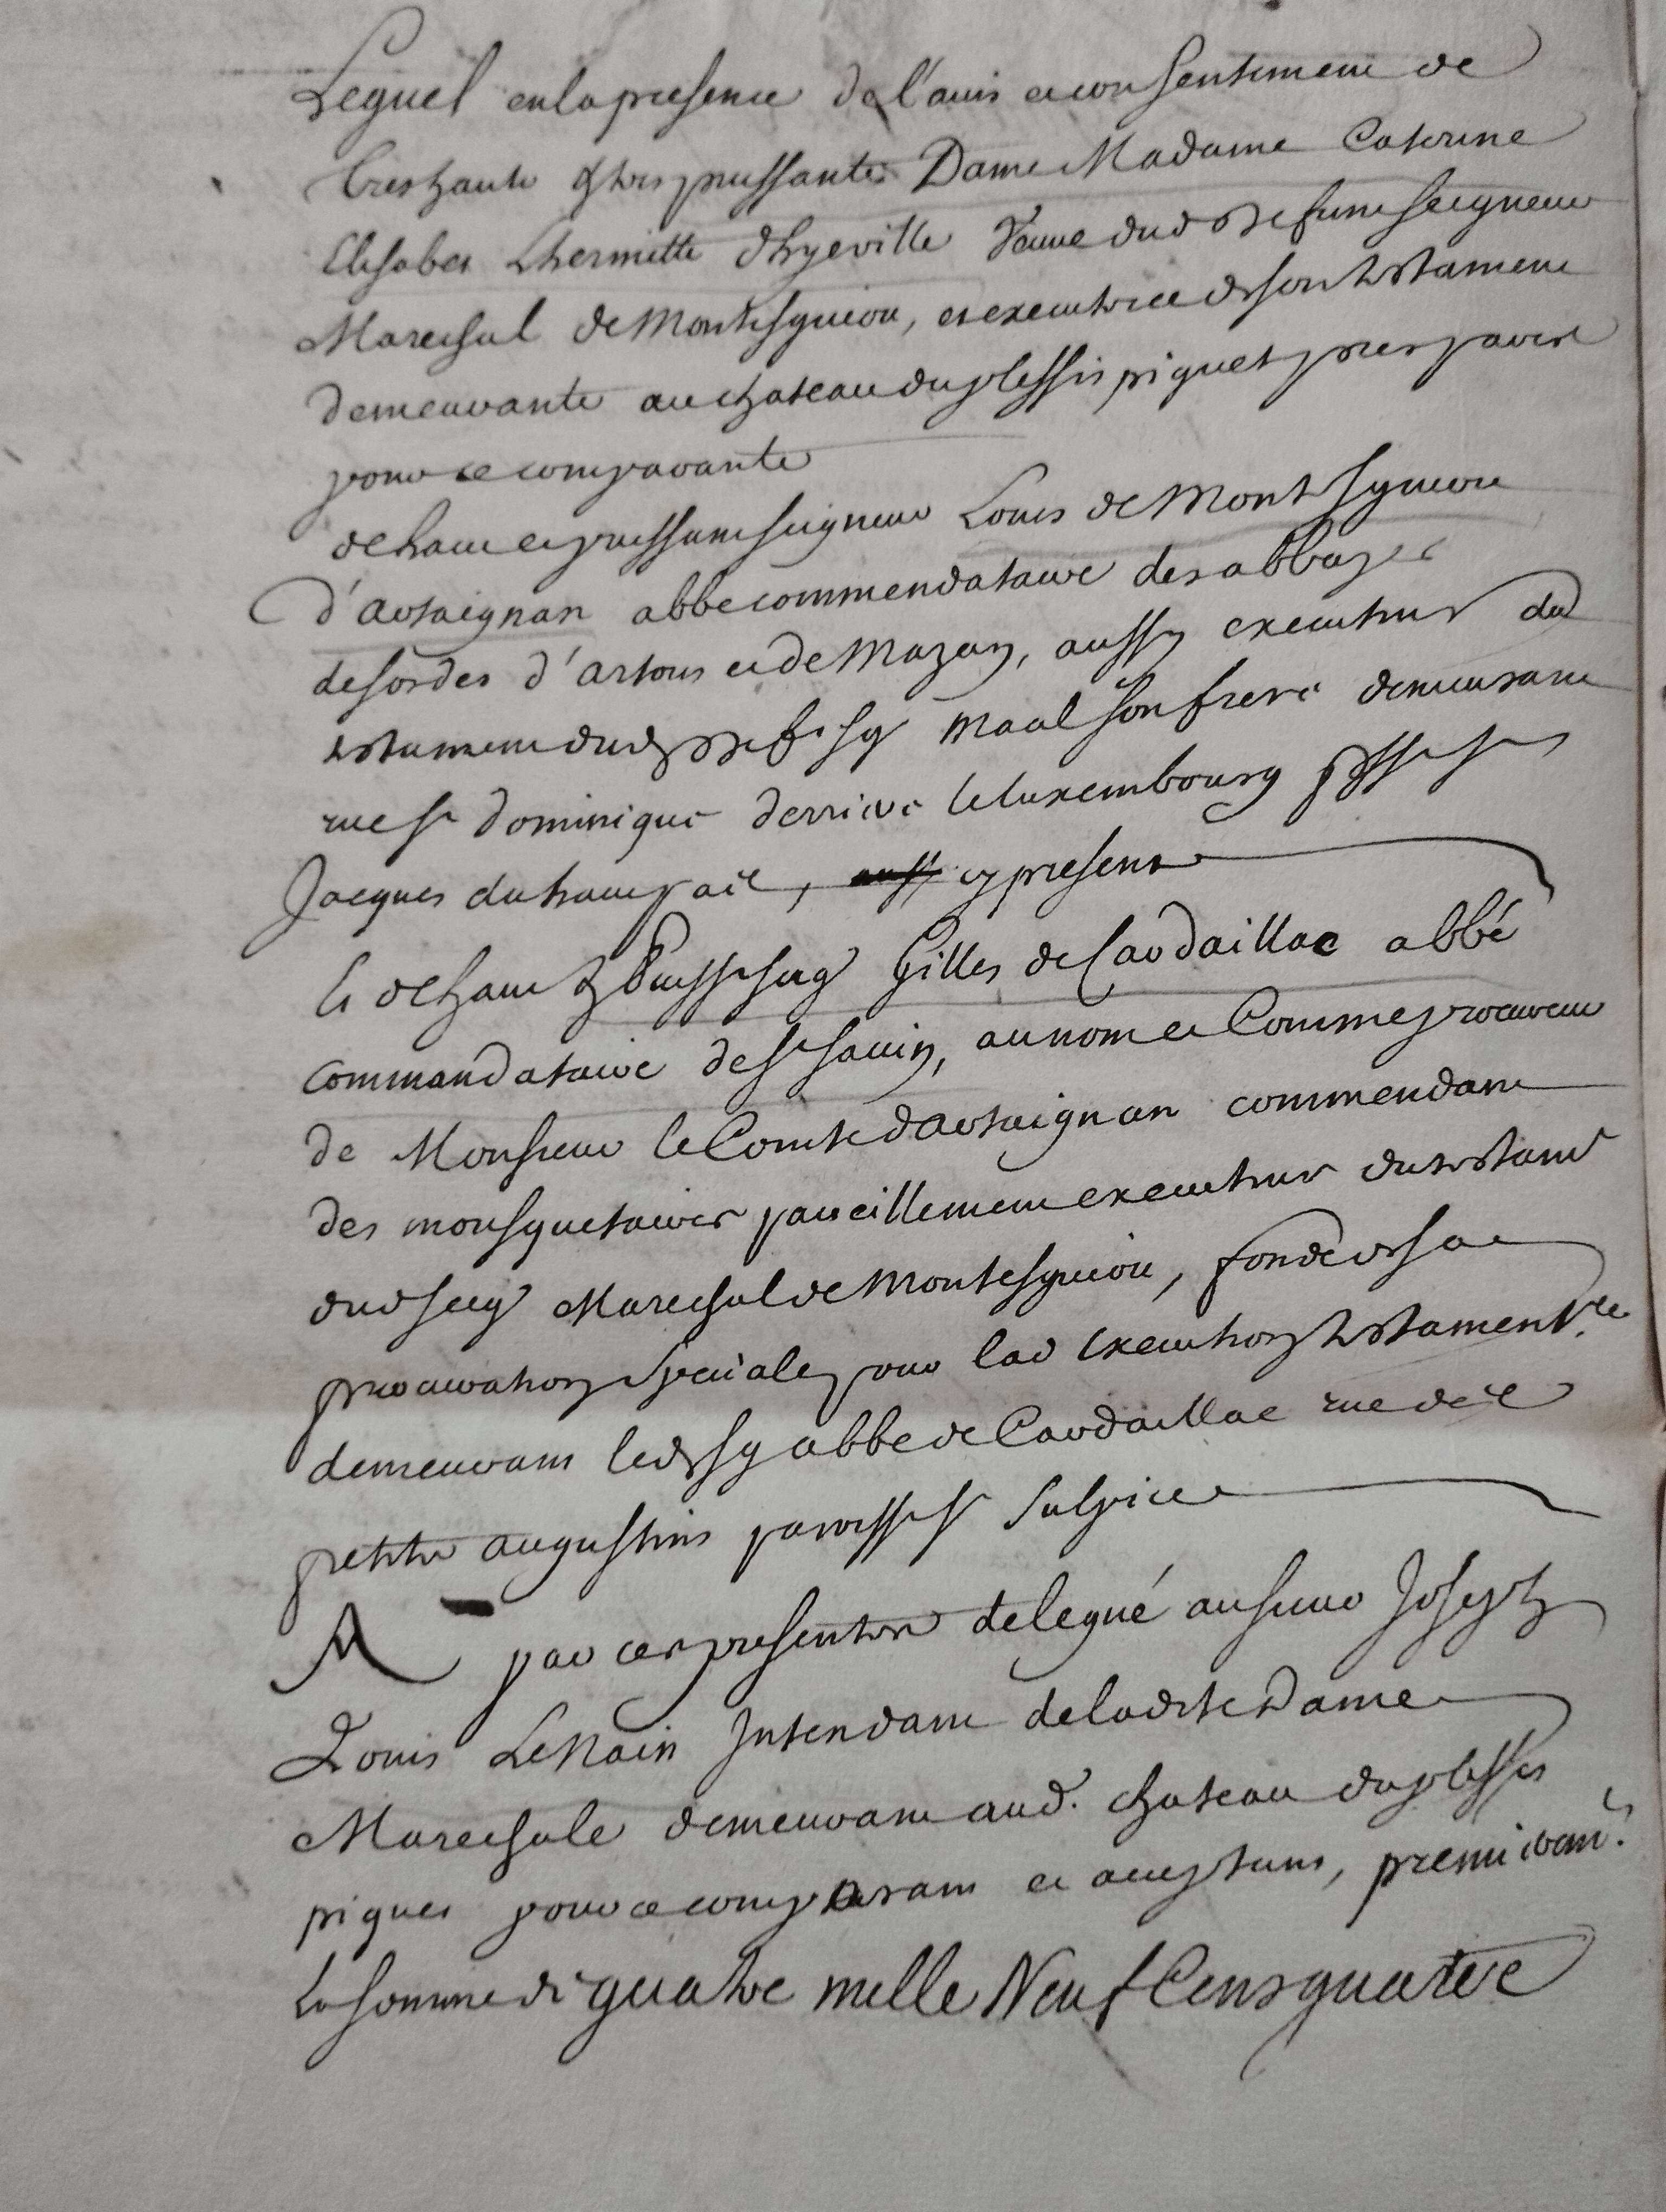 Lequel en la presence de l'avis et consentement de
tres haute & tres puissante Dame Madame Caterine
Elisabet Lhermitte d'hyeville Veuve dud defunt seigneur
Marechal de Montesquiou, et executrice de son testament
demeurante au chateau du plessis piquet pres paris
pour ce comparante
de haut et puissant seigneur Louis de Montesquiou
d'artaignan abbé commendataire des abbayes
de sordes d'artous et de Mazan, aussy executeur du
testament dud deft sgr maal son frere demeurant
rue st dominique derriere le luxembourg psse st
Jacques du haut pas, cy present
Et de haut & Puisst seigr Gilles de Cardaillac abbé
commandataire de st savin, au nom et Comme procureur
de Monsieur le Comte d'artaignan commendant
des mousquetaires pareillement executeur du testamt
dud seigr Marechal de Montesquiou, fondé de sa
procuration speciale pour lad execution testamentre
demeurant led sgr abbé de Cardaillac rue des
petits augustins paroisse st Sulpice
A par ces presentes delegué au sieur Joseph
Louis LeNain Intendant de ladite Dame
Marechale demeurant aud. chateau du plessis
piquet pour ce comparant et acceptant, premieremt.
La somme de quatre mille Neuf Cens quatre